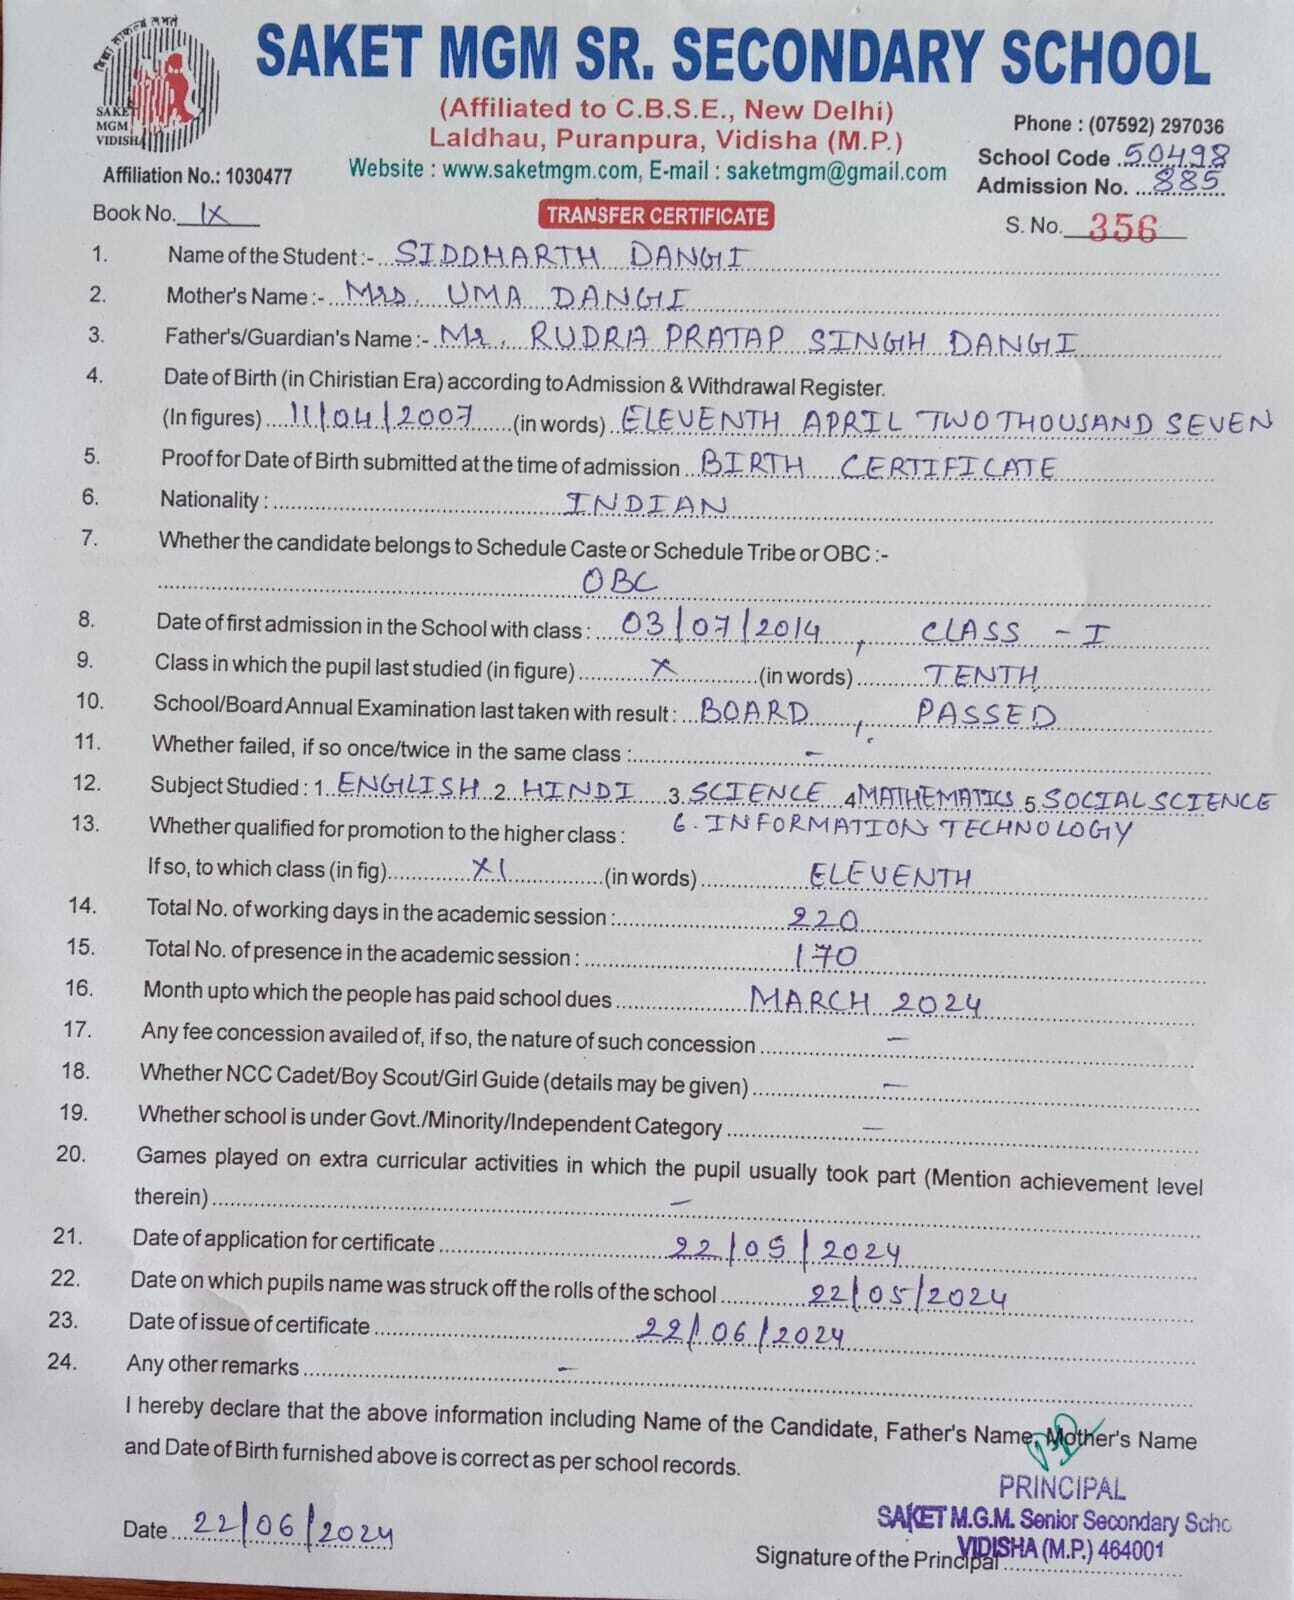 विद्या लाफल्यं लभते
SAKET
MGM
VIDISHA
SAKET MGM SR. SECONDARY SCHOOL
(Affiliated to C.B.S.E., New Delhi)
Laldhau, Puranpura, Vidisha (M.P.)
Phone : (07592) 297036
School Code 50498
Affiliation No.: 1030477
Website : www.saketmgm.com, E-mail : saketmgm@gmail.com
Admission No. 885
Book No. IX
TRANSFER CERTIFICATE
S. No. 356
1. Name of the Student :- SIDDHARTH DANGI
2. Mother's Name :- Mrs. UMA DANGI
3. Father's/Guardian's Name :- Mr. RUDRA PRATAP SINGH DANGI
4. Date of Birth (in Chiristian Era) according to Admission & Withdrawal Register.
(In figures) 11/04/2007 (in words) ELEVENTH APRIL TWO THOUSAND SEVEN
5. Proof for Date of Birth submitted at the time of admission BIRTH CERTIFICATE
6. Nationality : INDIAN
7. Whether the candidate belongs to Schedule Caste or Schedule Tribe or OBC :-
OBC
8. Date of first admission in the School with class : 03/07/2014, CLASS - I
9. Class in which the pupil last studied (in figure) X (in words) TENTH
10. School/Board Annual Examination last taken with result : BOARD, PASSED
11. Whether failed, if so once/twice in the same class : -
12. Subject Studied : 1. ENGLISH 2. HINDI 3. SCIENCE 4 MATHEMATICS 5. SOCIAL SCIENCE
6. INFORMATION TECHNOLOGY
13. Whether qualified for promotion to the higher class :
If so, to which class (in fig) XI (in words) ELEVENTH
14. Total No. of working days in the academic session : 220
15. Total No. of presence in the academic session : 170
16. Month upto which the people has paid school dues MARCH 2024
17. Any fee concession availed of, if so, the nature of such concession -
18. Whether NCC Cadet/Boy Scout/Girl Guide (details may be given) -
19. Whether school is under Govt./Minority/Independent Category -
20. Games played on extra curricular activities in which the pupil usually took part (Mention achievement level
therein) -
21. Date of application for certificate 22/05/2024
22. Date on which pupils name was struck off the rolls of the school 22/05/2024
23. Date of issue of certificate 22/06/2024
24. Any other remarks -
I hereby declare that the above information including Name of the Candidate, Father's Name, Mother's Name
and Date of Birth furnished above is correct as per school records.
PRINCIPAL
SAKET M.G.M. Senior Secondary Scho
VIDISHA (M.P.) 464001
Date 22/06/2024
Signature of the Principal